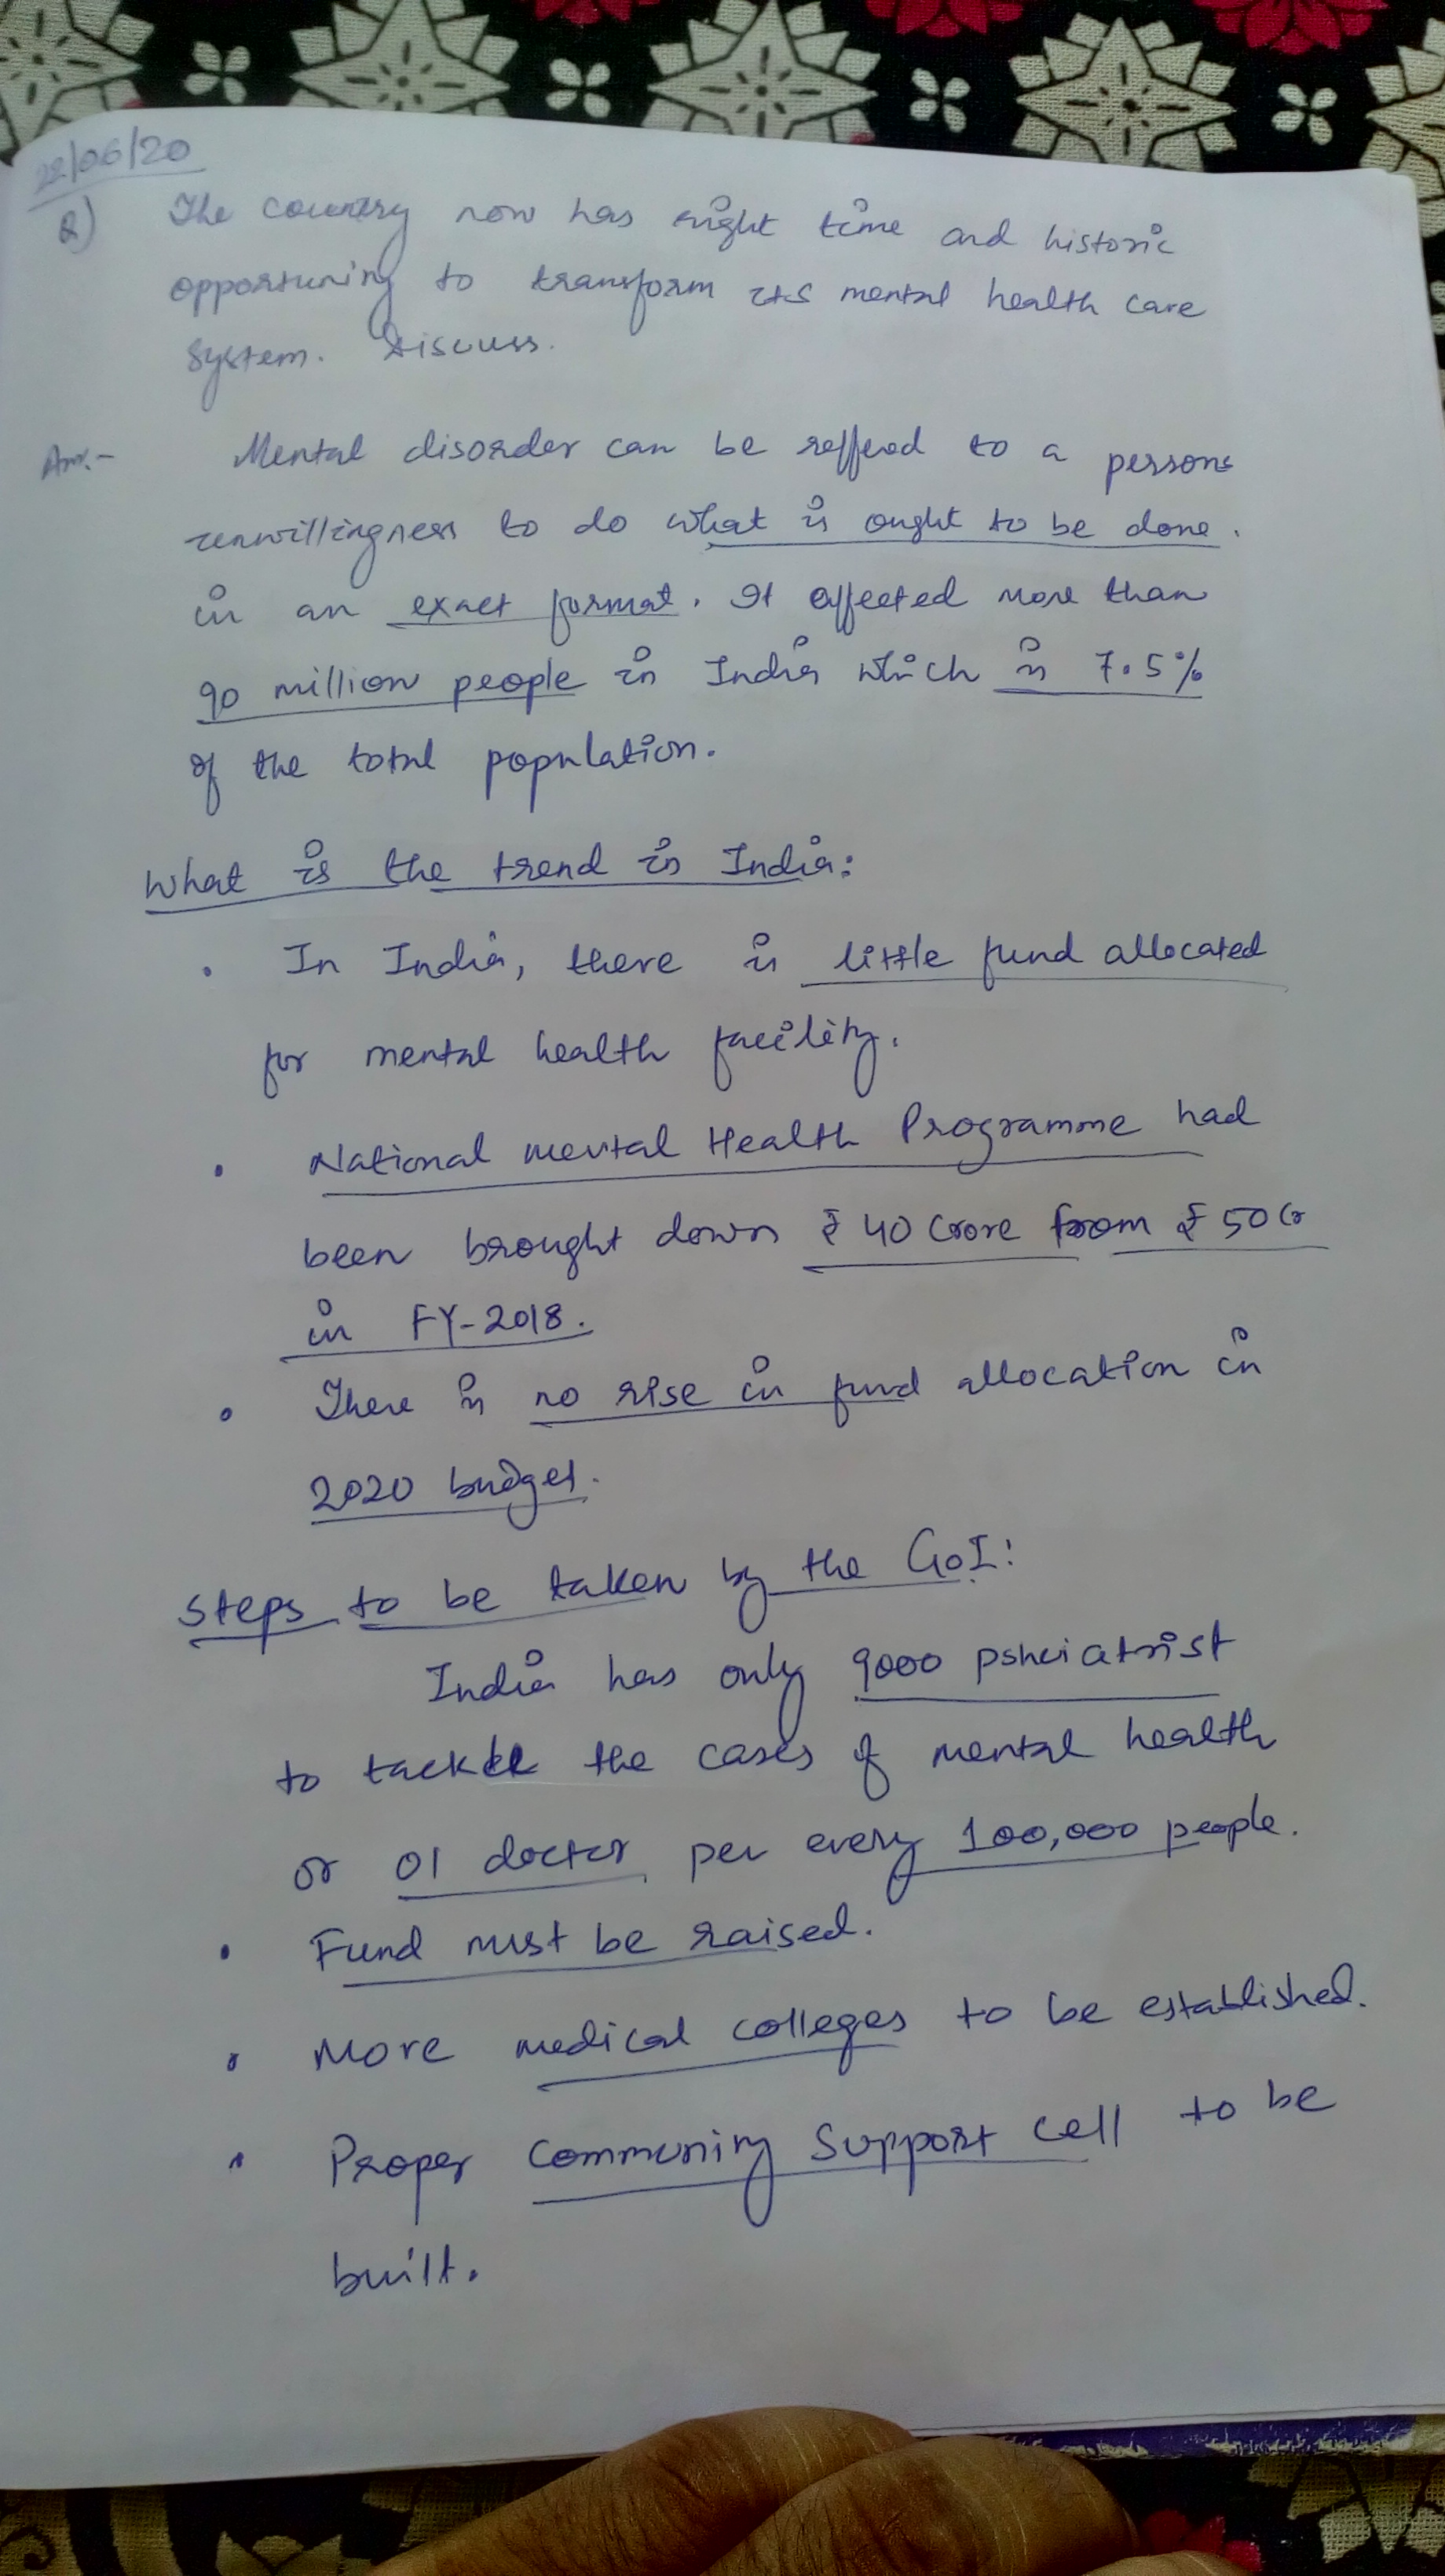 22/06/20
Q) The country now has right time and historic
opportunity to transform its mental health care
system. Discuss.
Ans.- Mental disorder can be reffered to a persons
unwillingness to do what is ought to be done.
in an exact format. It affected more than
90 million people in India which is 7.5%
of the total population.
What is the trend in India:
• In India, there is little fund allocated
for mental health facility.
• National mental Health Programme had
been brought down ₹ 40 Crore from ₹ 50 Cr
in FY-2018.
• There is no rise in fund allocation in
2020 budget.
Steps to be taken by the GoI:
India has only 9000 psheiatrist
to tackle the cases of mental health
or 01 doctor per every 100,000 people.
• Fund must be raised.
• More medical colleges to be established.
• Proper Community Support cell to be
built.